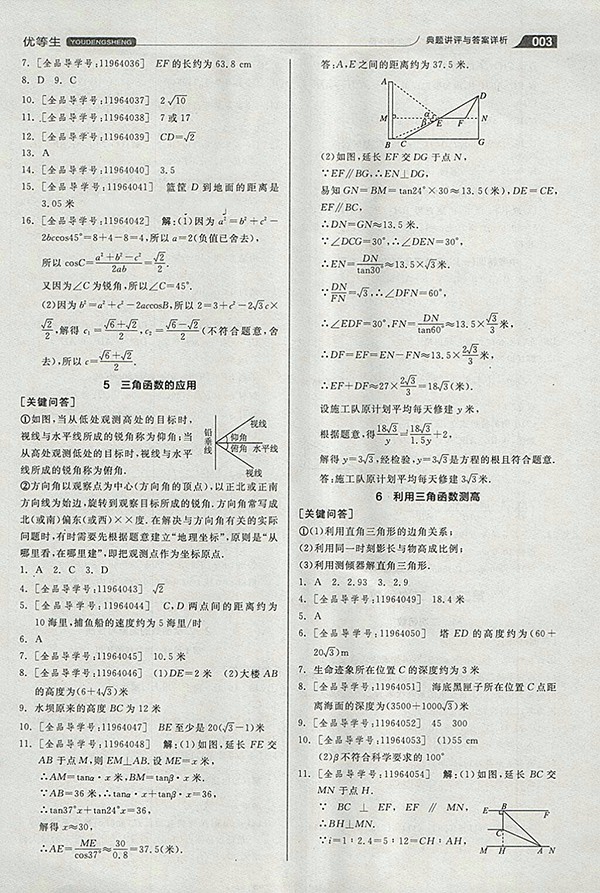 优等生 YOUDENGSHENG
典题讲评与答案详析 003
7. [全品导学号:11964036] EF的长约为63.8 cm
8. D 9. C
10. [全品导学号:11964037] 2√10
11. [全品导学号:11964038] 7或17
12. [全品导学号:11964039] CD=√2
13. A
14. [全品导学号:11964040] 3.5
15. [全品导学号:11964041] 篮筐D到地面的距离是
3.05米
16. [全品导学号:11964042] 解:(1)因为a²=b²+c²-
2bccos45°=8+4-8=4,所以a=2(负值已舍去),
所以cosC=(a²+b²-c²)/2ab=√2/2.
又因为∠C为锐角,所以∠C=45°.
(2)因为b²=a²+c²-2accosB,所以2=3+c²-2√3c×
√2/2,解得c₁=(√6+√2)/2,c₂=(√6-√2)/2(不符合题意,舍
去),所以c=(√6+√2)/2.
5 三角函数的应用
[关键问答]
①如图,当从低处观测高处的目标时,
视线与水平线所成的锐角称为仰角;当
从高处观测低处的目标时,视线与水平
线所成的锐角称为俯角.
铅垂线 视线 仰角 水平线 俯角 视线
②方向角以观察点为中心(方向角的顶点),以正北或正南
方向线为始边,旋转到观察目标所成的锐角.方向角常写成
北(或南)偏东(或西)××度.在解决与方向角有关的实际
问题时,有时需要先根据题意建立“地理坐标”,原则是“从
哪里看,在哪里建”,即把观测点作为坐标原点.
1. A 2. C 3. D
4. [全品导学号:11964043] √2
5. [全品导学号:11964044] C,D两点间的距离约为
10海里,捕鱼船的速度约为5海里/时
6. A
7. [全品导学号:11964045] 10.5米
8. [全品导学号:11964046] (1)DE=2米 (2)大楼AB
的高度为(6+4√3)米
9. 水坝原来的高度BC为12米
10. [全品导学号:11964047] BE至少是20(√3-1)米
11. [全品导学号:11964048] 解:(1)如图,延长FE交
AB于点M,则EM⊥AB.设ME=x米,
∴AM=tanα·x米,BM=tanβ·x米.
∵AB=36米,∴tanα·x+tanβ·x=36,
∴tan37°x+tan24°x=36,
解得x≈30,
∴AE=ME/cos37°≈30/0.8=37.5(米).
答:A,E之间的距离约为37.5米.
A D M α β E F N B C G
(2)如图,延长EF交DG于点N,
∵EF∥BG,∴EN⊥DG,
易知GN=BM=tan24°×30≈13.5(米),DE=CE,
EF∥BC,
∴DN=GN≈13.5米.
∵∠DCG=30°,∴∠DEN=30°,
∴EN=DN/tan30°≈13.5×√3米.
∵DN/FN=√3,∴∠DFN=60°,
∴∠EDF=30°,FN=DN/tan60°≈13.5×√3/3米,
∴DF=EF=EN-FN≈13.5×2√3/3米,
∴EF+DF≈27×2√3/3=18√3(米).
设施工队原计划平均每天修建y米,
根据题意,得18√3/y=18√3/1.5y+2,
解得y=3√3,经检验,y=3√3是方程的根且符合题意.
答:施工队原计划平均每天修建3√3米.
6 利用三角函数测高
[关键问答]
①(1)利用直角三角形的边角关系;
(2)利用同一时刻影长与物高成比例;
(3)利用测倾器解直角三角形.
1. A 2. 2.93 3. 2.9
4. [全品导学号:11964049] 18.4米
5. A
6. [全品导学号:11964050] 塔ED的高度约为(60+
20√3)m
7. 生命迹象所在位置C的深度约为3米
8. [全品导学号:11964051] 海底黑匣子所在位置C点距
离海面的深度为(3500+1000√3)米
9. [全品导学号:11964052] 45 300
10. [全品导学号:11964053] (1)55 cm
(2)β不符合科学要求的100°
11. [全品导学号:11964054] 解:(1)如图,延长BC交
MN于点H.
∵BC⊥EF,EF∥MN,
∴BH⊥MN.
∵i=1∶2.4=5∶12=CH∶AH,
E B F C M H A N